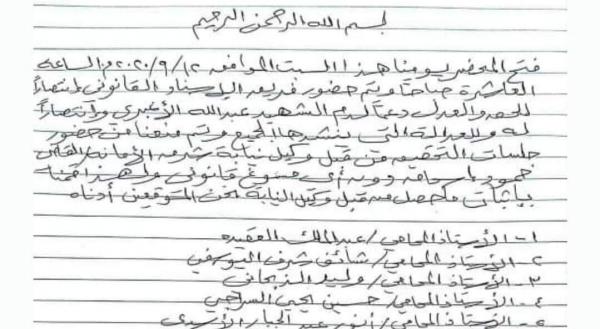 بسم الله الرحمن الرحيم
فتح المحضر يومنا هذا السبت الموافق ٢٠٢٠/٩/١٢م الساعة
العاشرة صباحا وتم حضور فريق الإسناد القانوني انتصاراً
للحق والعدل دعماً لدم الشهيد عبدالله الأغبري وانتصاراً
له وللعدالة التي ينشدها الجميع وتم منعنا من حضور
جلسات التحقيق من قبل وكيل نيابة شرق الأمانة القاضي
دون أي مسوغ قانوني ولهذا قمنا
بإثبات ما حصل من قبل وكيل النيابة نحن الموقعين أدناه
١- الأستاذ المحامي / عبدالملك العقيدة
٢- الأستاذ المحامي / شائف شرف اليوسفي
٣- الأستاذ المحامي / وليد
٤- الأستاذ المحامي / حسين يحيى السراجي
٥- الأستاذ المحامي / أنور عبد الجبار